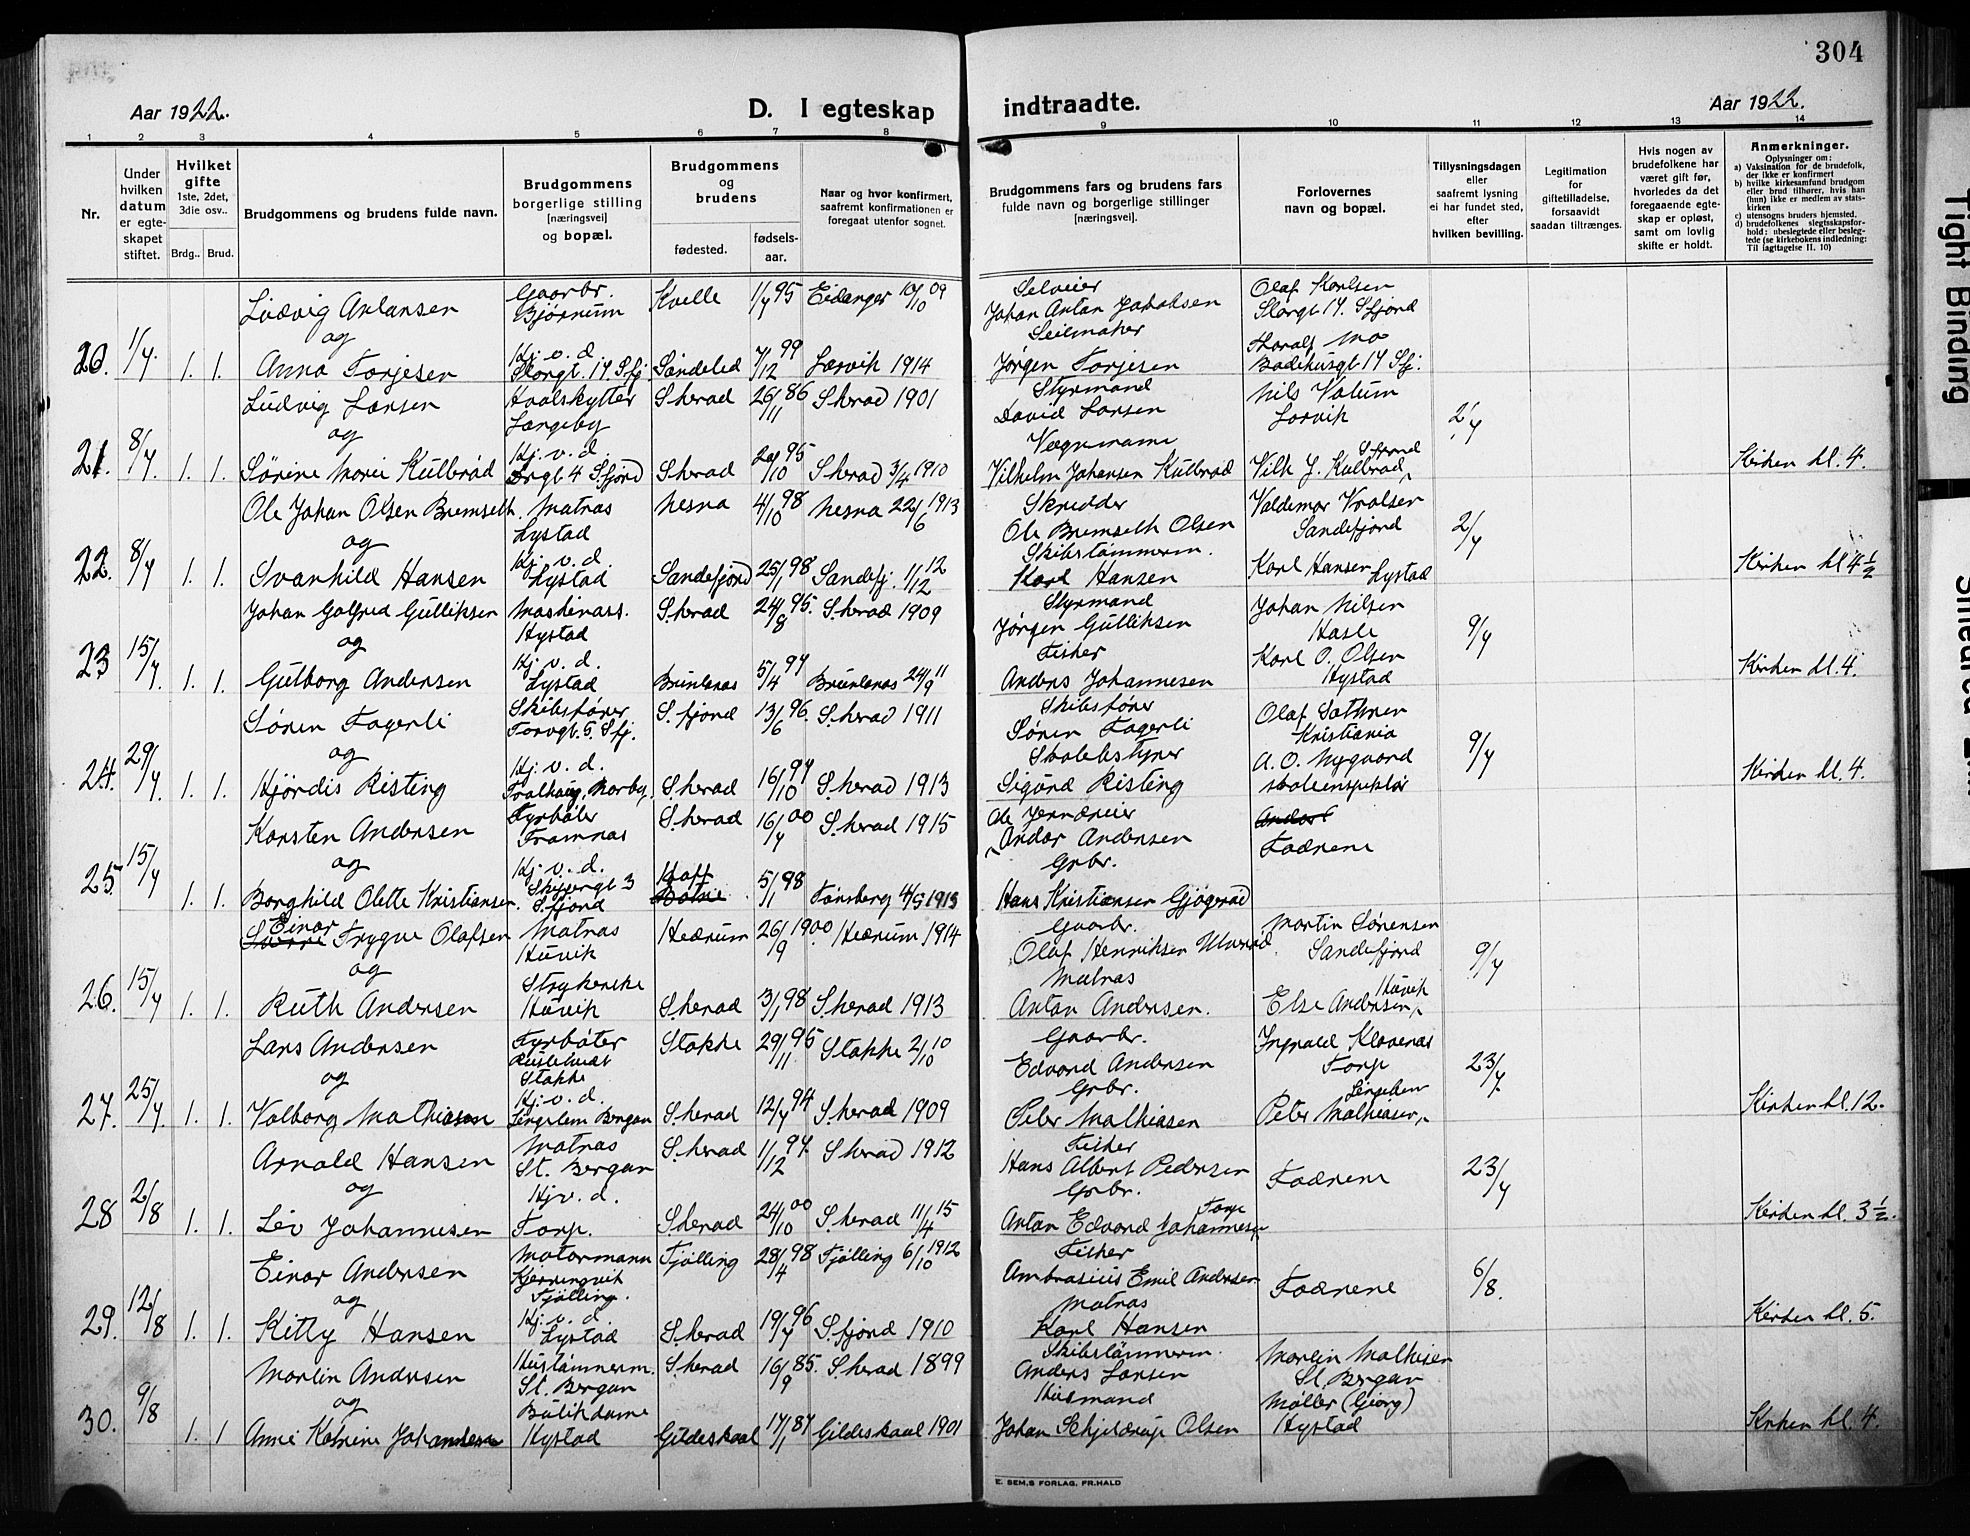 304
Aar 1922.
D. I egteskap
indtraadte.
Aar 1922.
1 2 3 4 5 6 7 8 9 10 11 12 13 14
Nr.
Under hvilken datum er egteskapet stiftet.
Hvilket gifte 1ste, 2det, 3die osv..
Brdg.. Brud.
Brudgommens og brudens fulde navn.
Brudgommens borgerlige stilling [næringsvei] og bopæl.
Brudgommens og brudens
fødested.
fødselsaar.
Naar og hvor konfirmert, saafremt konfirmationen er foregaat utenfor sognet.
Brudgommens fars og brudens fars fulde navn og borgerlige stillinger [næringsvei].
Forlovernes navn og bopæl.
Tillysningsdagen eller saafremt lysning ei har fundet sted, efter hvilken bevilling.
Legitimation for giftetilladelse, forsaavidt saadan tiltrænges.
Hvis nogen av brudefolkene har været gift før, hvorledes da det foregaaende egteskap er opløst, samt om lovlig skifte er holdt.
Anmerkninger.
Oplysninger om:
a) Vaksination for de brudefolk, der ikke er konfirmert
b) hvilke kirkesamfund brudgom eller brud tilhører, hvis han (hun) ikke er medlem av statskirken
c) utensogns bruders hjemsted.
d) brudefolkenes slegtsskapsforhold; ubeslegtede eller beslegtede (se kirkebokens indledning: Til iagttagelse II. 10)
Ludvig Antansen Gaarbr. Bjørnum Kvelle 1/7 95 Eidanger 10/10 09 Selveier Johan Antan Jakobsen Olaf Karlsen Storgt 14. Sfjord
og
20. 1/7. 1. 1. Anna Torjesen Hj. v. d. Storgt. 14 Sfj. Søndeled 7/12 99 Larvik 1914 Seilmaker Jørgen Torjesen Thoralf Mo Badehusgt 14 Sfj.
Ludvig Larsen Hvalskytter Langeby S.herad 26/11 86 S.herad 1901 Styrmand David Larsen Nils Valum Larvik 2/7
og
21. 8/7. 1. 1. Sørine Marie Kulbrød Hj. v. d. 4 S.fjord S.herad /10 95 S.herad 3/4 1910 Vognmann Vilhelm Johansen Kulbrød Vilh J. Kulbrød, S.fjord Kirken kl. 4.
Ole Johan Olsen Bremseth. Matros Lystad Nesna 4/10 98 Nesna 22/6 1913 Skrædder Ole Bremseth Olsen Valdemar Sandefjord 2/7
og
22. 8/7 1. 1. Svanhild Hansen Hj. v. d. Lystad Sandefjord 25/1 98 Sandefj. 1/12 12 Skibstømmerm. Karl Hansen Karl Hansen Lystad Kirken kl 4 1/2
Johan Galfred Gulliksen Maskinass. Hystad S.herad 24/8 95. S.herad 1909 Styrmand Jørgen Gulliksen Johan Nilsen Hasle 9/7
og
23 15/7. 1. 1. Gulborg Andersen Hj. v. d. Lystad Brunlanes 5/4 97 Brunlanes 24/9 11 Fisker Anders Johannesen Karl O. Olsen Hystad Kirken kl. 4.
Søren Fagerli Skibsfører Torvgt. 5. Sfj. S.fjord 13/6 96. S.herad 1911 Skibsfører Søren Fagerli Olaf Kristiania 9/7
og
24. 29/7. 1. 1. Hjørdis Risting Hj. v. d. S.herad 16/10 94 S.herad 1913 Skolebestyrer Sigurd Risting A. O. Nygaard skoleinspektør Kirken kl. 4.
Karsten Andersen Fyrbøter Framnæs S.herad 16/7 00 S.herad 1915 Andor Andersen Fædrene
og
25 15/7 1. 1. Borghild Olette Kristiansen. Hj. v. d. 3 S.fjord Hoff 5/1 98 Tønsberg 4/5 1913 Grbr. Hans Kristiansen Gjøgerød
Einar Trygve Olafsen Matros Huvik Hedrum 26/9 1900 Hedrum 1914 Gaarbr. Olaf Henriksen Martin Sørensen Sandefjord 9/7
og
26. 15/7 1. 1. Ruth Andersen Strykerske Huvik S.herad 3/1 98 S.herad 1913 Matros Antan Andersen. Else Andersen, Huvik
Lars Andersen Fyrbøter Stokke Stokke 29/11 95 Stokke 2/10 10 Gaarbr. Edvard Andersen Ingvald Klavenæs Torp 23/7
og
27. 25/7. 1. 1. Valborg Mathiasen Hj. v. d. Bergan S.herad 12/7 94 S.herad 1909 Grbr. Peter Mathiasen Peter Mathiasen, Kirken kl. 12.
Arnold Hansen Matros St. Bergan S.herad 1/12 94. S.herad 1912 Fisker Hans Albert Pedersen Fædrene 23/7
og
28 2/8 1. 1. Liv Johannesen Hj v. d. Torp. S.herad 24/10 00 S.herad 11/4 15 Grbr. Antan Edvard Johannesen Torp Kirken kl. 3 1/2.
Einar Andersen Motormann Kjerringvik Tjølling. Tjølling 28/4 98 Tjølling 6/10 1912 Fisker Ambrosius Emil Andersen Fædrene 6/8.
og
29. 12/8 1. 1. Kitty Hansen Hj. v. d. Lystad S.herad 19/7 96 S.fjord 1910 Matros Karl Hansen Kirken kl. 5.
Martin Andersen Hustømmerm. St. Bergan S.herad 16/9 85. S.herad 1899 Skibstømmerm. Anders Larsen Martin Mathisen St. Bergan
og
30. 9/8 1. 1 Anne Katrine Johansen Butikdame Hystad Gildeskaal 17/1 87 Gildeskaal 1901 Husmand Johan Schjelderup Olsen Møller (Georg) Hystad Kirken kl. 4.
E. SEM,S FORLAG, FR.HALD
Tight Binding